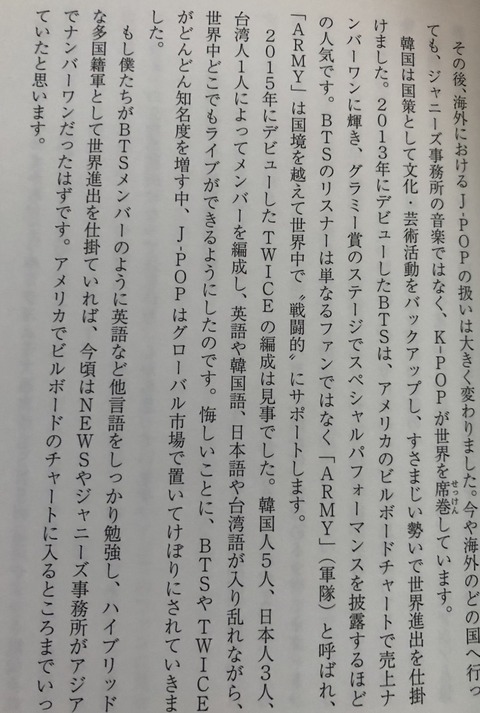 その後、海外におけるJ-POPの扱いは大きく変わりました。今や海外のどの国へ行っ
ても、ジャニーズ事務所の音楽ではなく、K-POPが世界を席巻しています。
せっけん
韓国は国策として文化・芸術活動をバックアップし、すさまじい勢いで世界進出を仕掛
けました。2013年にデビューしたBTSは、アメリカのビルボードチャートで売上ナ
ンバーワンに輝き、グラミー賞のステージでスペシャルパフォーマンスを披露するほど
の人気です。BTSのリスナーは単なるファンではなく「ARMY」(軍隊)と呼ばれ、
「ARMY」は国境を越えて世界中で〝戦闘的〟にサポートします。
2015年にデビューしたTWICEの編成は見事でした。韓国人5人、日本人3人、
台湾人1人によってメンバーを編成し、英語や韓国語、日本語や台湾語が入り乱れながら、
世界中どこでもライブができるようにしたのです。悔しいことに、BTSやTWICE
がどんどん知名度を増す中、J-POPはグローバル市場で置いてけぼりにされていきま
した。
もし僕たちがBTSメンバーのように英語など他言語をしっかり勉強し、ハイブリッド
な多国籍軍として世界進出を仕掛ていれば、今頃はNEWSやジャニーズ事務所がアジア
でナンバーワンだったはずです。アメリカでビルボードのチャートに入るところまでいっ
ていたと思います。